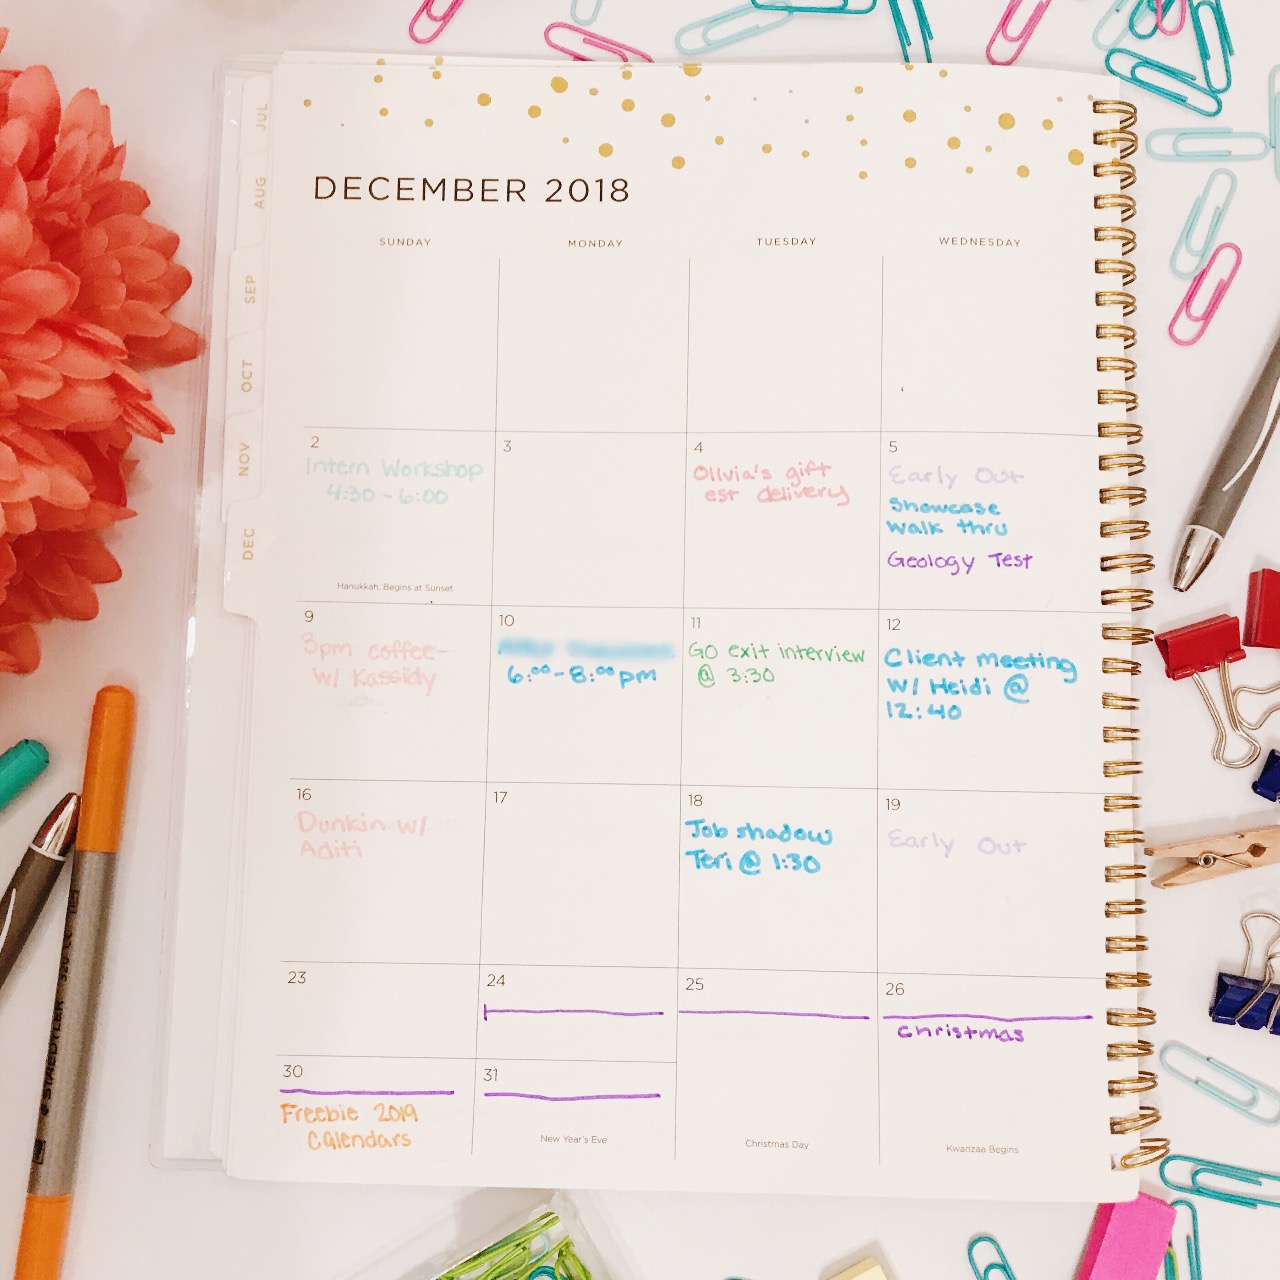 JUL
AUG
SEP
OCT
NOV
DEC
DECEMBER 2018
SUNDAY MONDAY TUESDAY WEDNESDAY
2
Intern Workshop
4:30 - 6:00
Hanukkah, Begins at Sunset
3
4
Olivia's gift
est delivery
5
Early Out
Showcase
walk thru
Geology Test
9
3pm coffee
w/ Kassidy
10
6:00 - 8:00 pm
11
GO exit interview
@ 3:30
12
Client meeting
w/ Heidi @
12:40
16
Dunkin w/
Aditi
17
18
Job shadow
Teri @ 1:30
19
Early Out
23
24
25
Christmas Day
26
Christmas
Kwanzaa Begins
30
Freebie 2019
Calendars
31
New Year's Eve
STAEDTLER